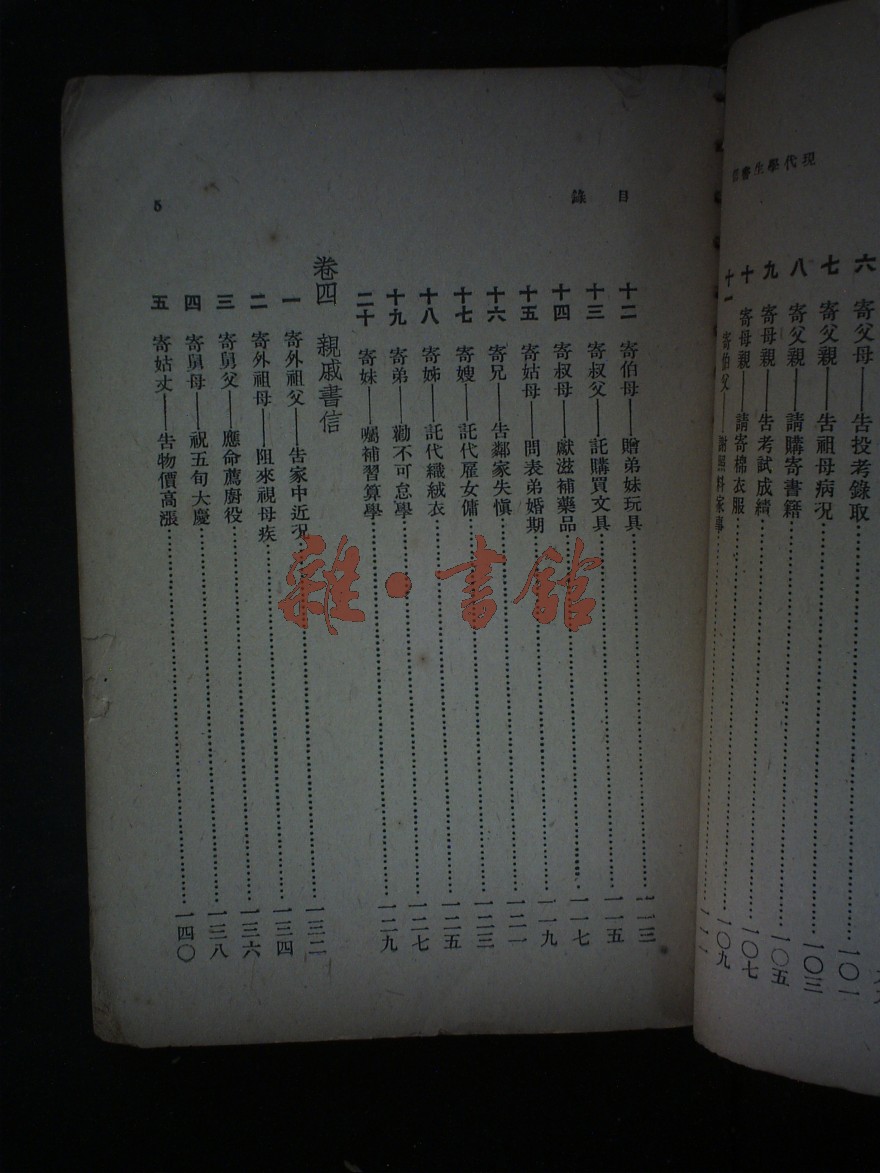 現代學生書
六 寄父母——告投考錄取…………一〇一
七 寄父親——告祖母病況…………一〇三
八 寄父親——請購寄書籍…………一〇五
九 寄母親——告考試成績…………一〇七
十 寄母親——請寄棉衣服…………一〇九
十一 寄伯父——謝照料家事…………一一一
目錄
5
十二 寄伯母——贈弟妹玩具…………一一三
十三 寄叔父——託購買文具…………一一五
十四 寄叔母——獻滋補藥品…………一一七
十五 寄姑母——問表弟婚期…………一一九
十六 寄兄——告鄰家失慎…………一二一
十七 寄嫂——託代雇女傭…………一二三
十八 寄姊——託代織絨衣…………一二五
十九 寄弟——勸不可怠學…………一二七
二十 寄妹——囑補習算學…………一二九
卷四 親戚書信
一 寄外祖父——告家中近況…………一三二
二 寄外祖母——阻來視母疾…………一三四
三 寄舅父——應命薦廚役…………一三六
四 寄舅母——祝五旬大慶…………一三八
五 寄姑丈——告物價高漲…………一四〇
雜·書館